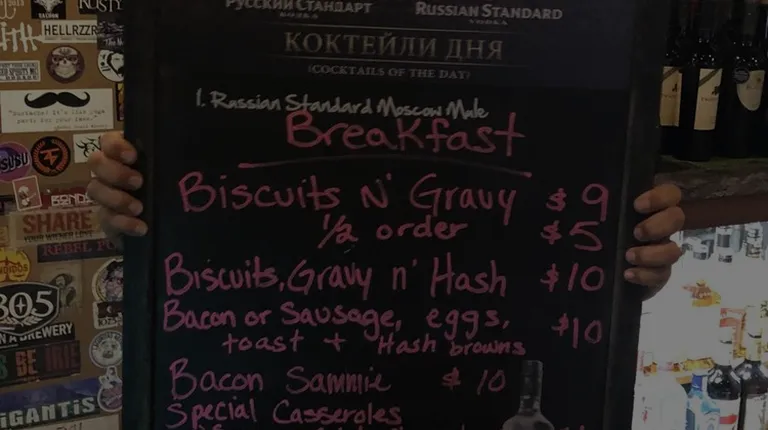 РУССКИЙ СТАНДАРТ
ВОДКА
RUSSIAN STANDARD
VODKA
КОКТЕЙЛИ ДНЯ
(COCKTAILS OF THE DAY)
1. Russian Standard Moscow Mule
Breakfast
Biscuits N' Gravy $9
1/2 order $5
Biscuits, Gravy n' Hash $10
Bacon or Sausage, eggs, $10
toast + Hash browns
Bacon Sammie $10
Special Casseroles
HELLRZZR
SUSU
SHARE
REBEL
305
BREWERY
GiGANTiS